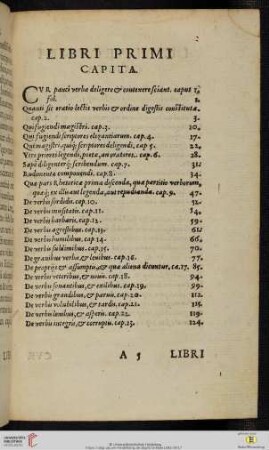 2
LIBRI PRIMI
CAPITA.
CVR pauci verba deligere & contexere sciant. caput 1.
fol. 2.
Quanti sit oratio lectis verbis & ordine digestis constituta.
cap. 2. 5.
Qui fugiendi magistri. cap. 3. 10.
Qui fugiendi scriptores elegantiarum. cap. 4. 17.
Qui magistri, quíq; scriptores deligendi, cap. 5. 22.
Vtrè promti legendi, poetæ, an oratores. cap. 6. 28.
Sæpè diligenterq́; scribendum. cap. 7. 31
Rudimenta componendi. cap. 8. 34.
Qua pars Rhetoricæ prima discenda, quæ partitio verborum,
quæq́; ex illis aut legenda, aut repudianda. cap. 9. 47.
De verbis sordidis. cap. 10. 52.
De verbis inusitatis. cap. 11. 54.
De verbis barbaris. cap. 12. 59.
De verbis agrestibus. cap. 13. 61
De verbis humilibus. cap. 14. 66.
De verbis sublimibus. cap. 15. 70.
De grauibus verbis, & leuibus. cap. 16. 77.
De proprijs & assumptis, & quæ aliena dicuntur, ca. 17. 85.
De verbis veteribus, & nouis. cap. 18. 92.
De verbis sonantibus, & exilibus. cap. 19. 99.
De verbis grandibus, & paruis. cap. 20. 112.
De verbis volubilibus, & tardis. cap. 21. 115.
De verbis lenibus, & asperis. cap. 22. 119.
De verbis integris, & corruptis. cap. 23. 124.
A 5 LIBRI